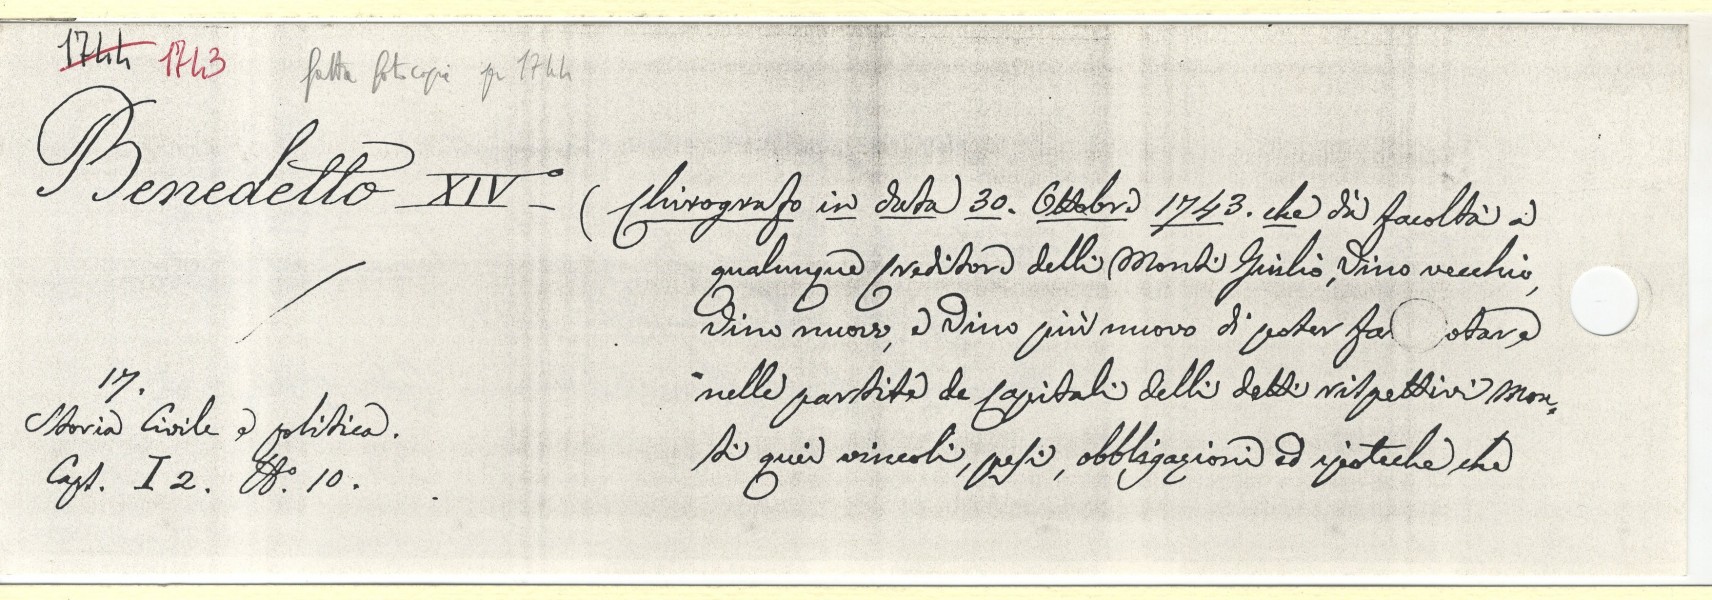 1744 1743 fatta fotocopia per 1744
Benedetto XIV.° (Chirografo in data 30. Ottobre 1743. che dà facoltà a
qualunque Creditore delli Monti Giulio, Vino vecchio,
Vino nuovo, e Vino più nuovo di poter fa otare
nelle partite de Capitali delli detti rispettivi Mon-
ti quei vincoli, pesi, obbligazioni ed ipoteche che
17.
Storia Civile e politica.
Caps. I 2. N.° 10.